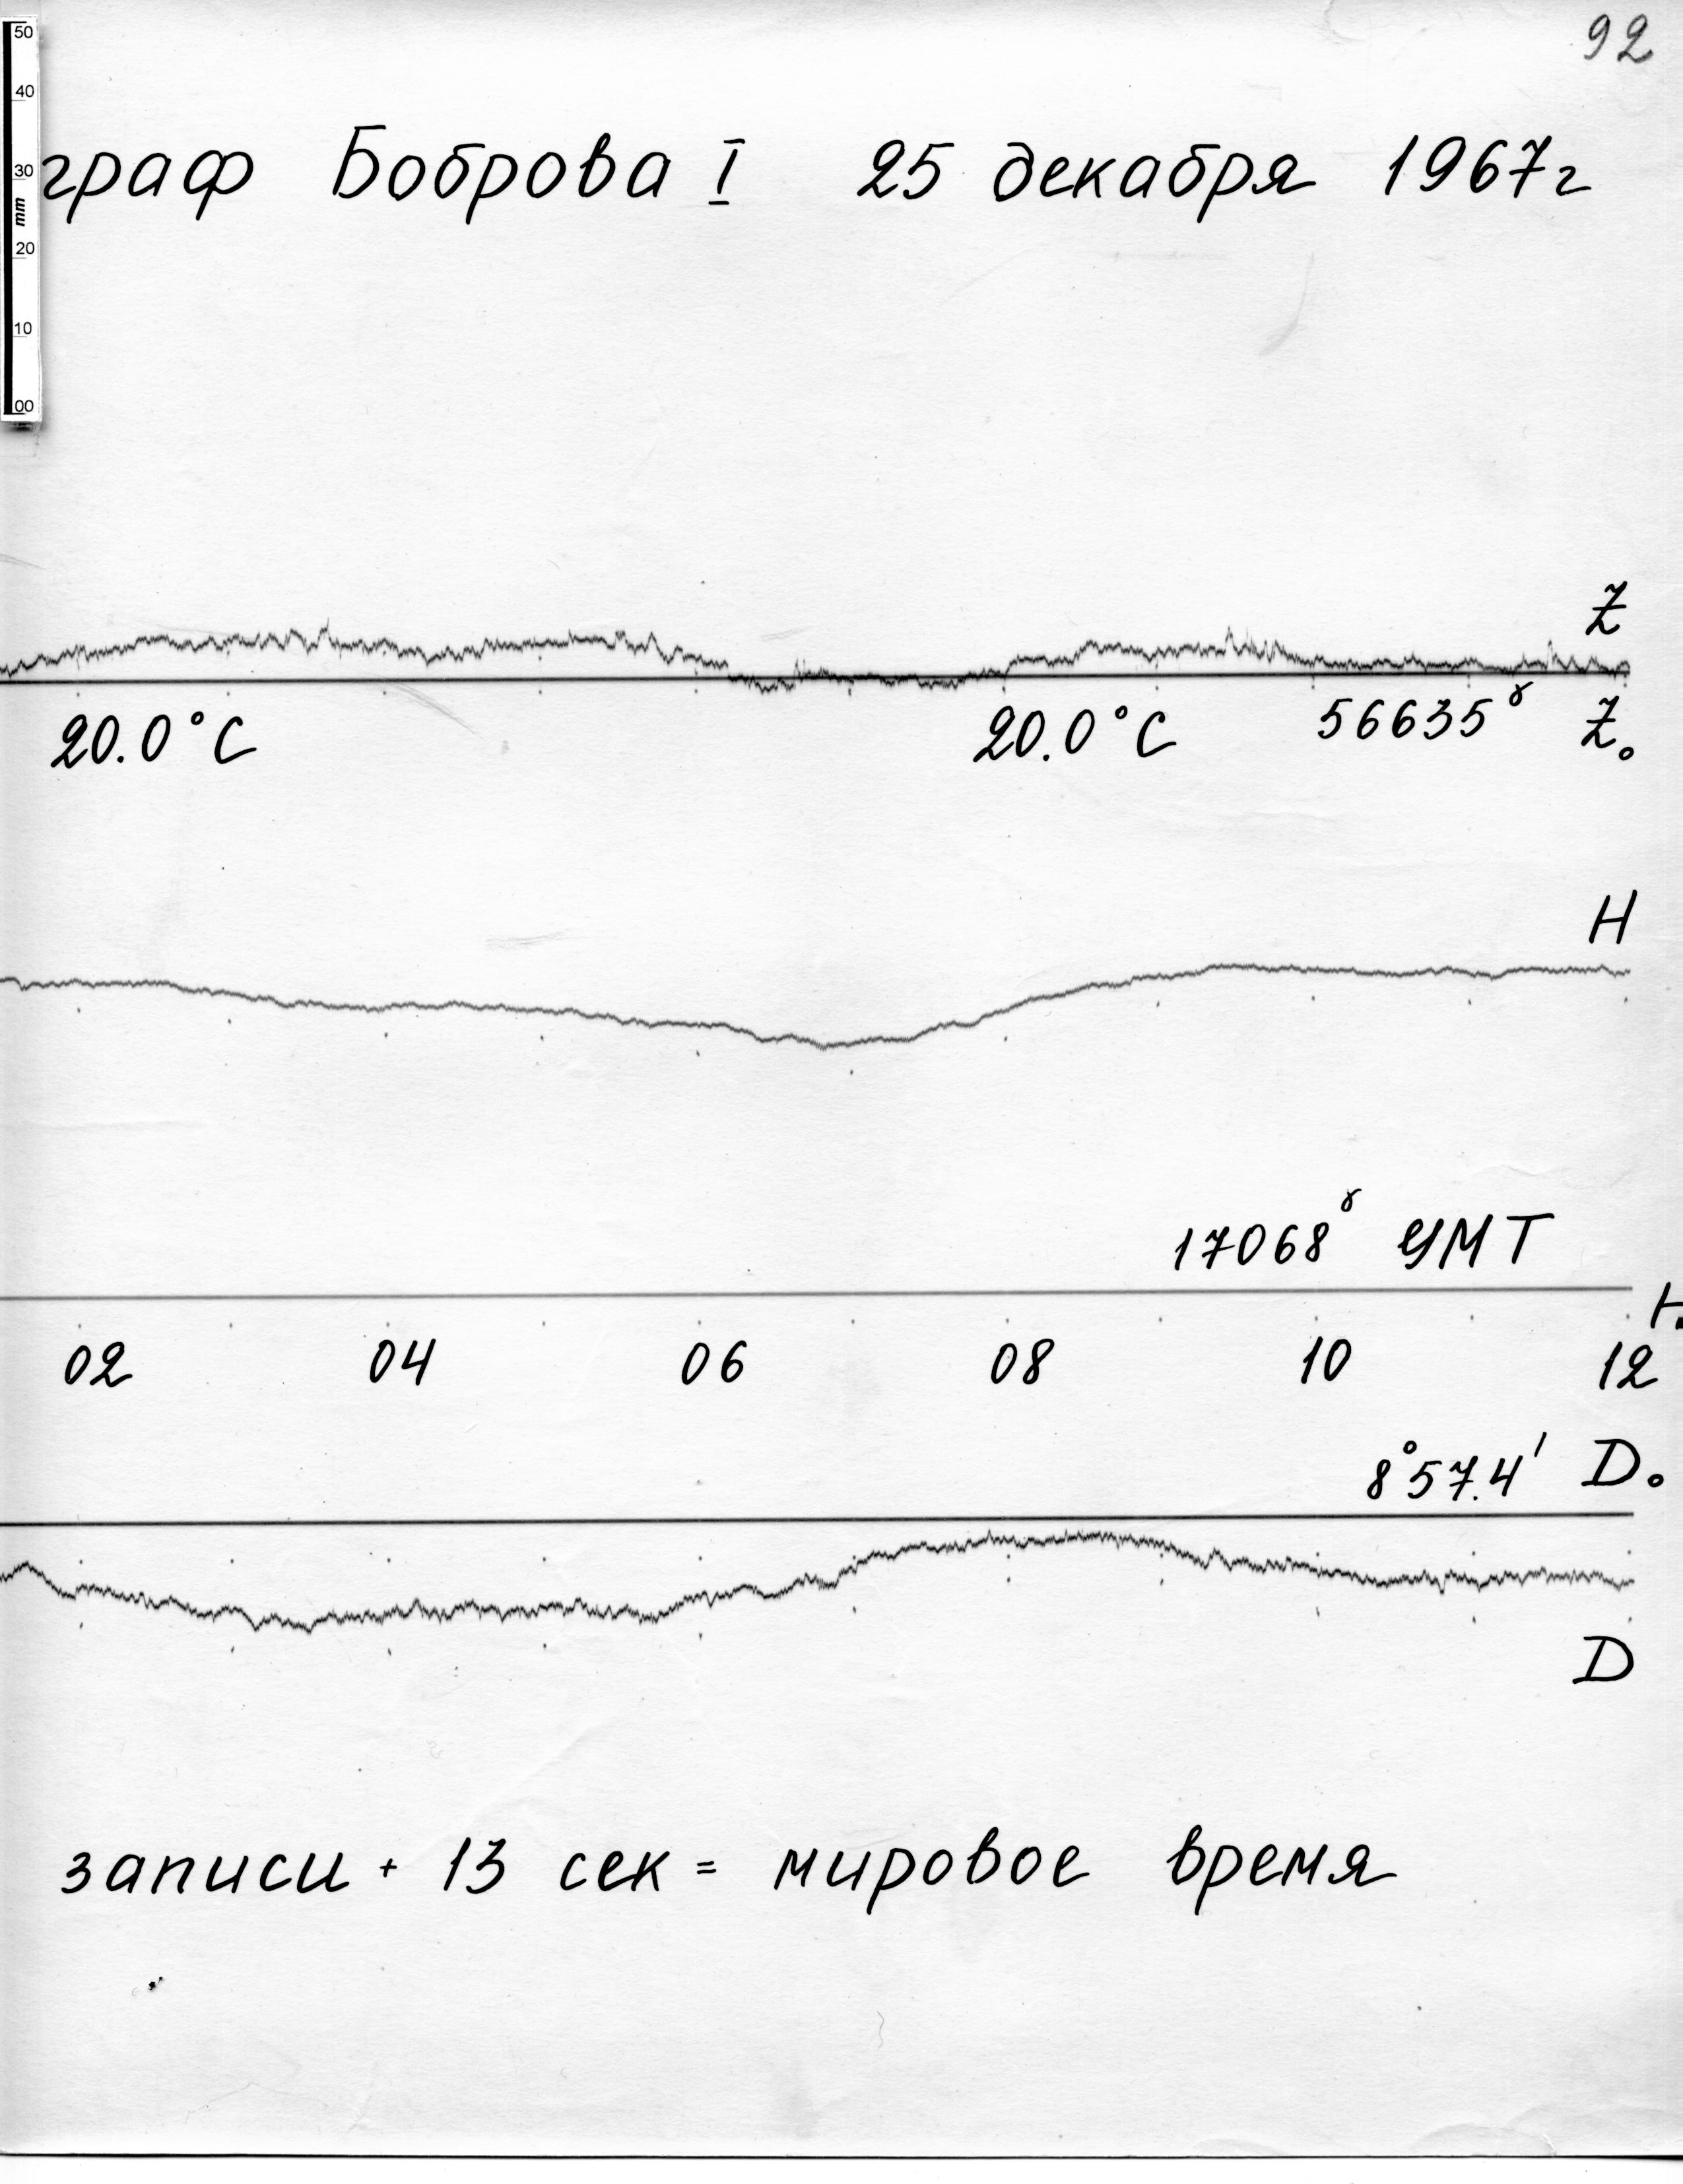 92
50
40
30
mm
20
10
00
граф Боброва I 25 декабря 1967г
Z
20.0°C 20.0°C 56635γ Z₀
H
17068γ УМТ
02 04 06 08 10 12
8°57.4' D₀
D
записи + 13 сек = мировое время